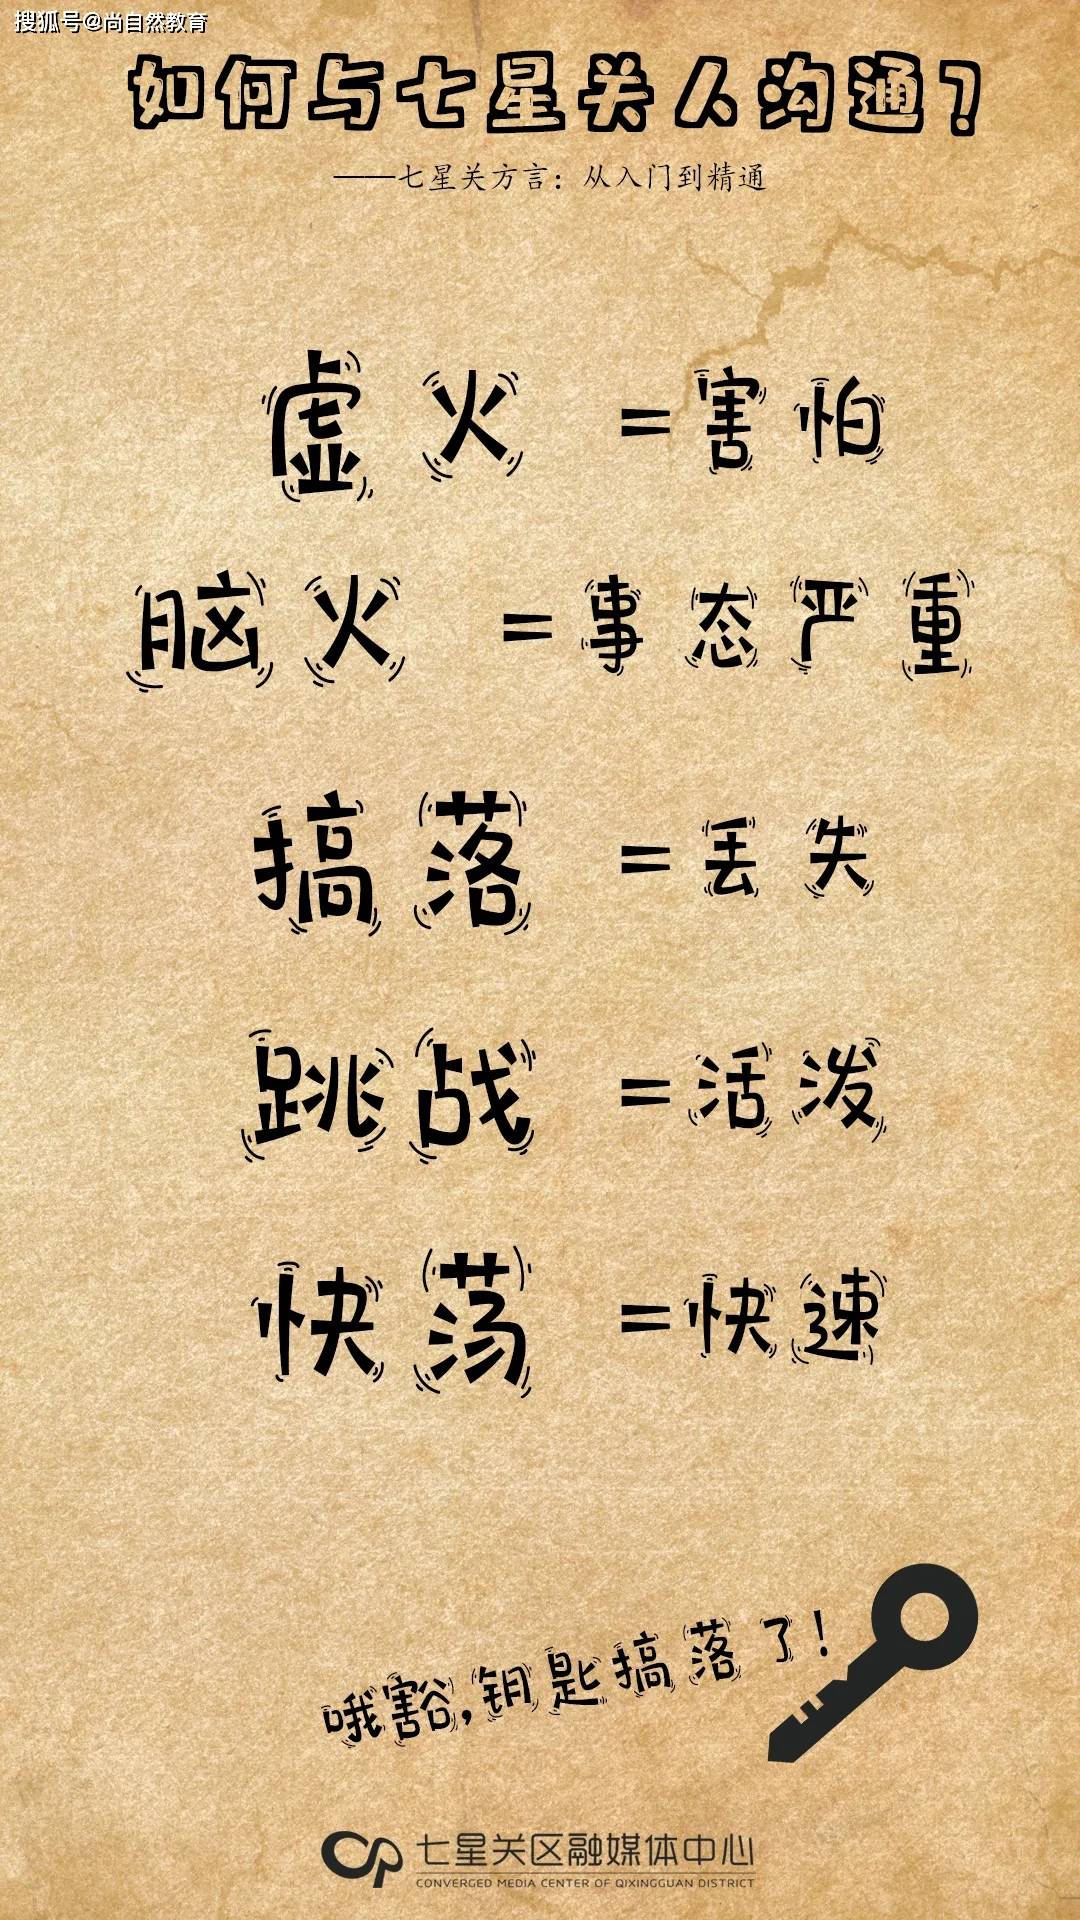 搜狐号@尚自然教育
如何与七星关人沟通?
——七星关方言：从入门到精通
虚火 =害怕
脑火 =事态严重
搞落 =丢失
跳战 =活泼
快荡 =快速
哦豁,钥匙搞落了!
七星关区融媒体中心
CONVERGED MEDIA CENTER OF QIXINGGUAN DISTRICT